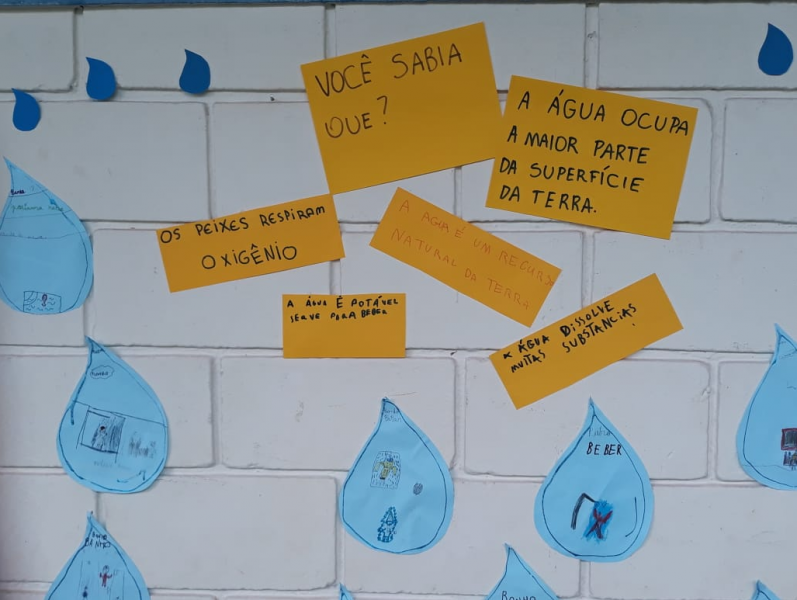 VOCÊ SABIA
QUE?
A ÁGUA OCUPA
A MAIOR PARTE
DA SUPERFÍCIE
DA TERRA.
OS PEIXES RESPIRAM
OXIGÊNIO
A AGUA É UM RECURSO
NATURAL DA TERRA
A ÁGUA É POTÁVEL
SERVE PARA BEBER
A ÁGUA DISSOLVE
MUITAS SUBSTANCIAS
BEBER
BANHO